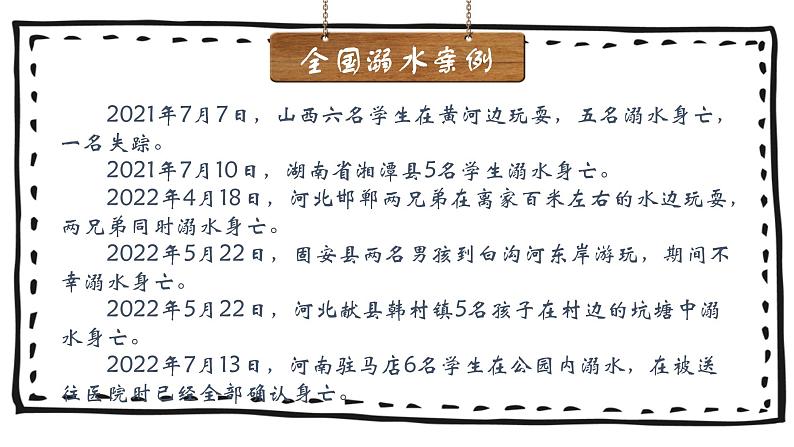 全国溺水案例
2021年7月7日，山西六名学生在黄河边玩耍，五名溺水身亡，
一名失踪。
2021年7月10日，湖南省湘潭县5名学生溺水身亡。
2022年4月18日，河北邯郸两兄弟在离家百米左右的水边玩耍，
两兄弟同时溺水身亡。
2022年5月22日，固安县两名男孩到白沟河东岸游玩，期间不
幸溺水身亡。
2022年5月22日，河北献县韩村镇5名孩子在村边的坑塘中溺
水身亡。
2022年7月13日，河南驻马店6名学生在公园内溺水，在被送
往医院时已经全部确认身亡。